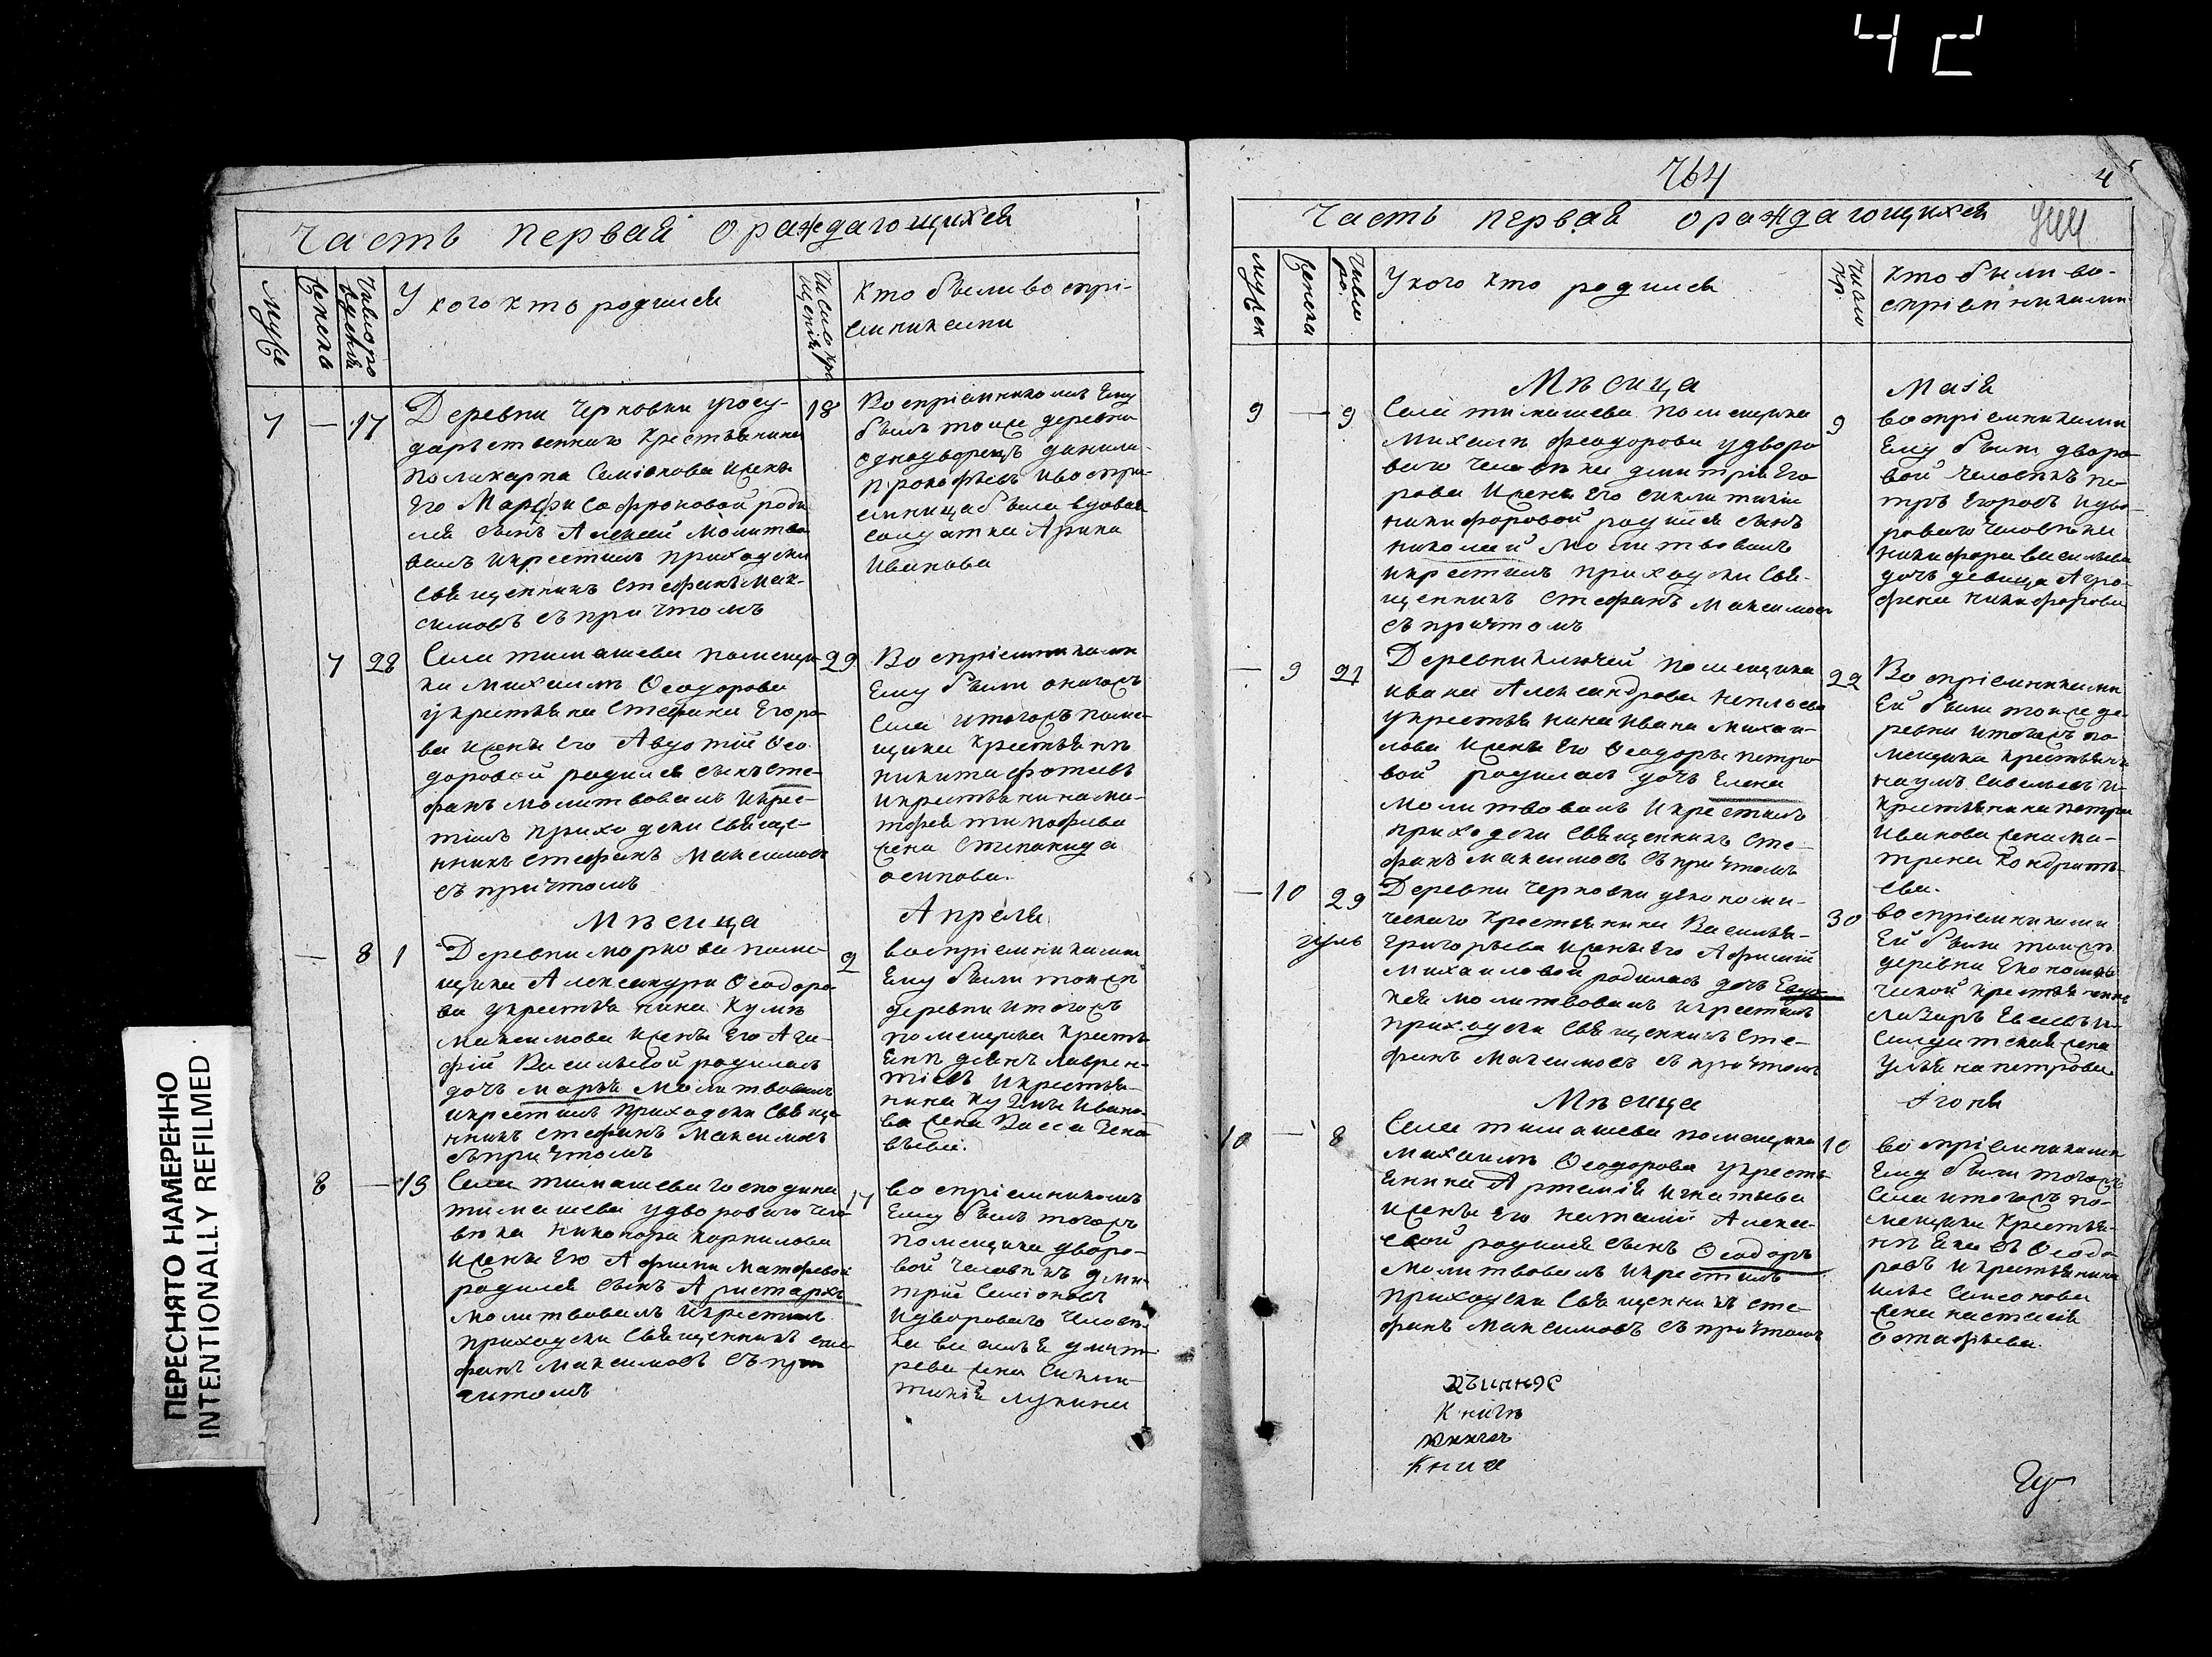 42
ПЕРЕСНЯТО НАМЕРЕННО
INTENTIONALLY REFILMED
Часть первая о раждающихся
Муже
Женска
Число ро
ждения
У кого кто родился
Число кре
щения
Кто были воспрі-
емниками
7 — 17
Деревни Черновки у госу-
дарственнаго крестьянина
Поликарпа Семіонова и жены
его Марфы Софроновой роди
лся сынъ Алексей молитво
валъ и крестилъ приходски
священникъ Стефанъ Мак-
симовъ съ причтомъ
18
Воспріемникомъ ему
былъ тоиже деревни
однодворецъ данила
Прокофьевъ и воспри-
емница была вдовая
солдатка Арина
Иванова
7 28
Села тимашева помещи-
ка Михаилы Феодорова
у крестьянина Стефана Егоро-
ва и жены его Авдотьи Фео-
доровой родился сынъ Сте-
фанъ молитвовалъ и крес-
тилъ приходски свяще-
нникъ Стефанъ Максимовъ
съ причтомъ
29
Воспріемниками
ему были онагожъ
села и тогожъ поме-
щика крестьянинъ
никита фотеевъ
и крестьянина ма-
тфея тимофева
жена Степанида
осипова.
Мѣсяца
Апреля
— 8 1
Деревни морковки поме-
щика Александра Феодоро-
ва у крестьянина Кузмы
Максимова и жены его Ага-
фій Васильевой родилась
дочь Марья молитвовалъ
и крестилъ приходски свяще
нникъ Стефанъ Максимовъ
съ причтомъ
2
воспріемниками
ему были тоижъ
деревни и тогожъ
помещика кресть-
янинъ лаврен-
тіевъ и крестья-
нина Кузмы Ивано-
ва жена Васса
8 — 13
Села тимашева господина
тимашева у двороваго чело-
вѣка Никонора корнилова
и жены его Афимьи Матфевой
родился сынъ Аристархъ
молитвовалъ и крестилъ
приходски священникъ Сте-
фанъ Максимовъ съ при
читомъ
17
воспріемникомъ
ему былъ тогожъ
помещика дворо-
вой человѣкъ дми-
трій Семіоновъ
и двороваго человѣ-
ка василья дмит-
рева жена
лукина
764
4
Часть первая о раждающихся
Мужск
Женска
Число
ро.
У кого кто родился
Число
кр.
Кто были во-
спріемниками
Мѣсяца
Маія
9 — 9
Села тимашева помещика
Михаилы феодорова у дворо
ваго человѣка дмитрія Его
рова и жены его
никифоровой родился сынъ
николай молитвовалъ
и крестилъ приходски свя-
щенникъ Стефанъ Максимовъ
съ причтомъ
9
воспріемниками
ему были дворо-
вой человѣкъ пе-
тръ Егоровъ и дво-
роваго человѣка
никифора васильева
дочь девица Агро-
фена никифорова
— 9 21
Деревни ключей помещика
ивана Александрова неплюева
у крестьянина ивана михаи-
лова и жены его Феодоры петро
вой родилась дочь Елена
молитвовалъ и крестилъ
приходски священникъ Сте-
фанъ максимовъ съ причтомъ
22
Воспріемниками
ей были тоиже де-
ревни и тогожъ по
мещика крестьянинъ
наумъ савельевъ и
крестьянина петра
иванова жена ма-
трена кондрать-
ева.
— 10 29
Деревни черновки у экономи-
ческаго крестьянина Василья
григорьева и жены его Афимій
Михаиловой родилась дочь Евдо-
кея молитвовалъ и крестилъ
приходски священникъ Сте-
фанъ Максимовъ съ причтомъ
30
воспріемниками
ей были тоижъ
деревни економи
ческой крестьянинъ
лазарь Евсеевъ и
салдатская жена
Ульяна петрова
Мѣсяца
Іюня
10 — 8
Села тимашева помещика
михаилы Феодорова у кресть
янина Артемія игнатьева
и жены его наталіи Алексе-
евой родился сынъ Феодоръ
молитвовалъ и крестилъ
приходски священникъ Сте-
фанъ максимовъ съ причтомъ
10
воспріемниками
ему были тогожъ
села и тогожъ по-
мещика крестья-
нъ Яковъ Феодо
ровъ и крестьянина
ильи Самсонова
жена настасія
Остафьева.
Книгѣ
Книга